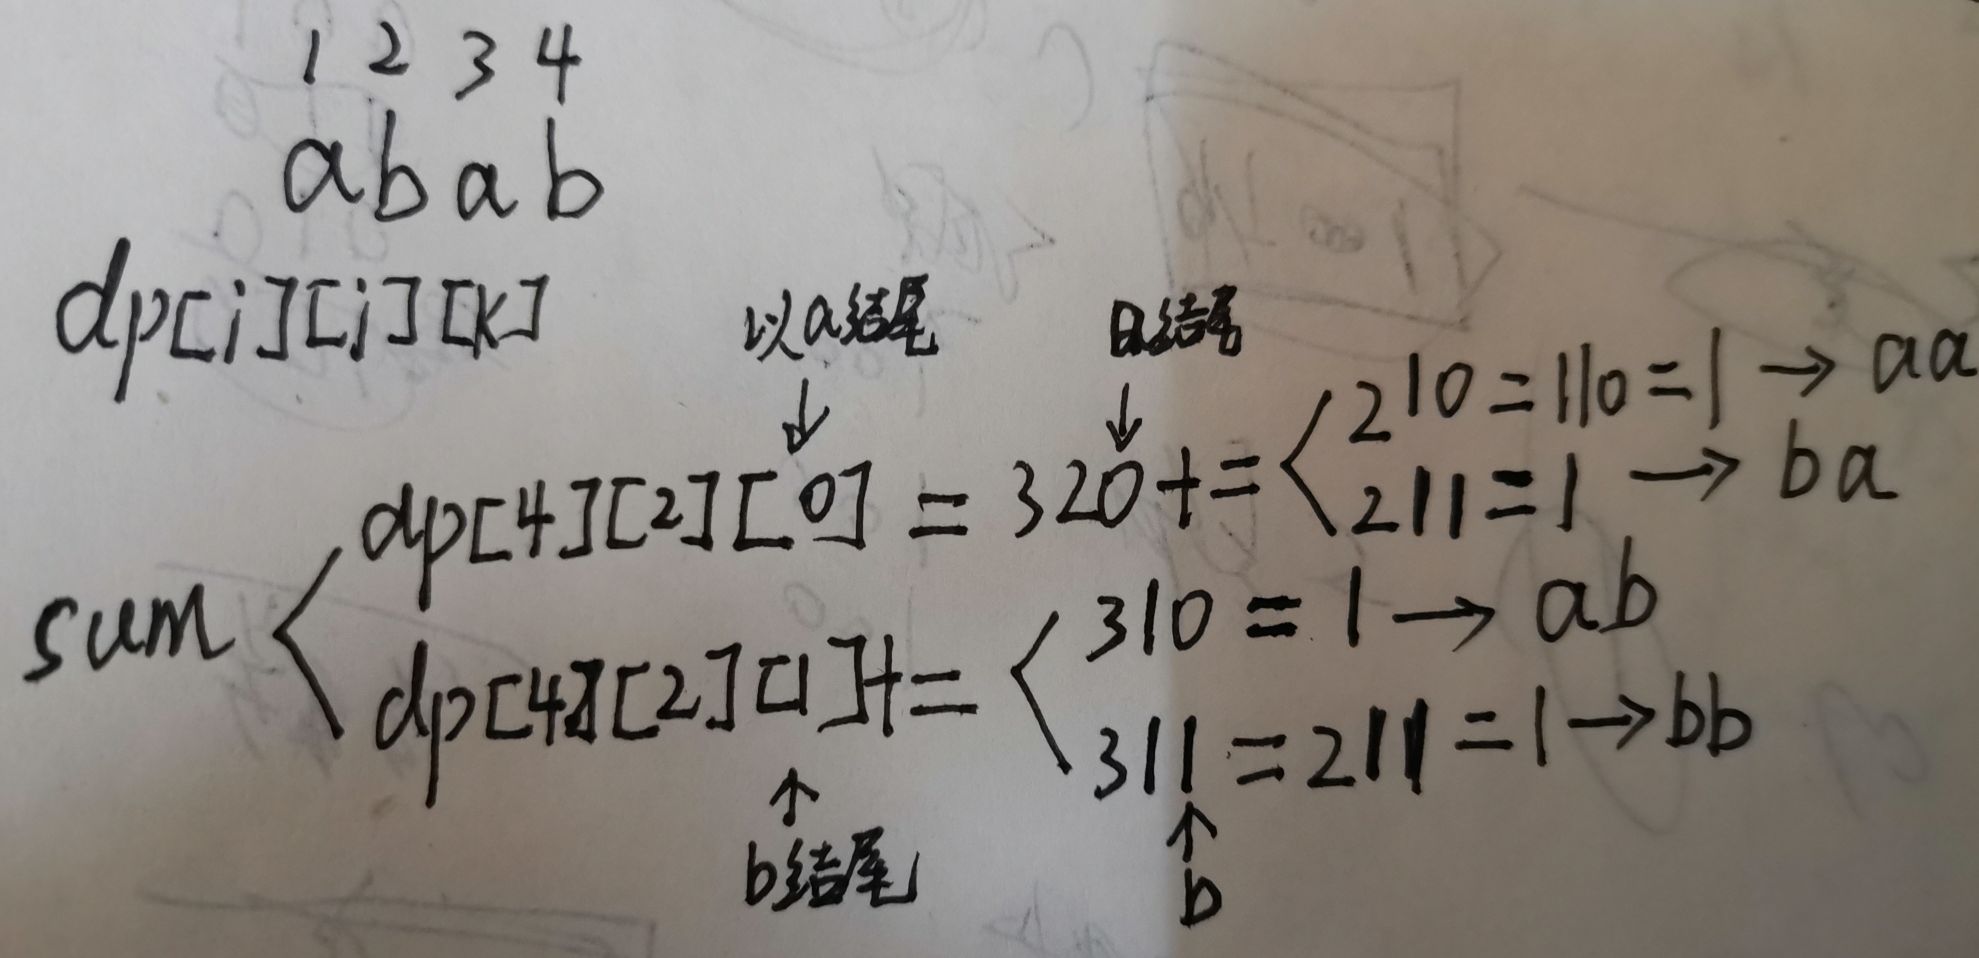 1 2 3 4
a b a b
dp[i][j][k]
以a结尾
a结尾
dp[4][2][0] = 320 += 210 = 110 = 1 → aa
211 = 1 → ba
sum
dp[4][2][1] += 310 = 1 → ab
311 = 211 = 1 → bb
b结尾
b